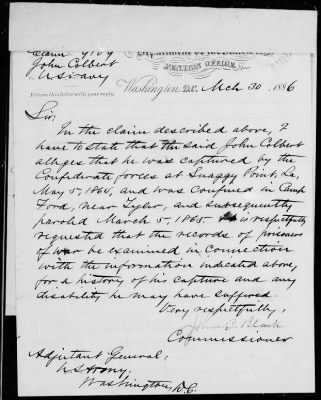 Claim
John Colbert
U.S. Navy
Department of the Interior,
PENSION OFFICE,
Return this letter with your reply.
Washington, D.C. Mch 30, 1886
Sir:
In the claim described above, I
have to state that the said John Colbert
alleges that he was captured by the
Confederate forces at Snaggy Point, La,
May 5, 1864, and was confined in Camp
Ford, near Tyler, and subsequently
paroled March 5, 1865. It is respectfully
requested that the records of prisoners
of war be examined in connection
with the information indicated above,
for a history of his capture and any
disability he may have suffered.
Very respectfully,
John C. Black
Commissioner
Adjutant General,
U.S. Army,
Washington, D.C.